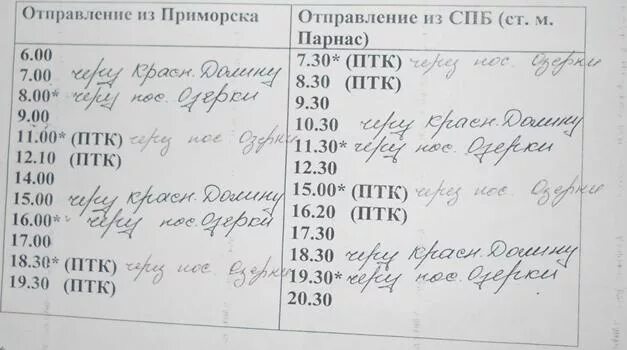 Отправление из Приморска
6.00
7.00 через Красн. Долину
8.00* через пос. Озерки
9.00
11.00* (ПТК) через пос. Озерки
12.10 (ПТК)
14.00
15.00 через Красн. Долину
16.00* через пос. Озерки
17.00
18.30* (ПТК) через пос. Озерки
19.30 (ПТК)
Отправление из СПБ (ст. м.
Парнас)
7.30* (ПТК) через пос. Озерки
8.30 (ПТК)
9.30
10.30 через Красн. Долину
11.30* через пос. Озерки
12.30
15.00* (ПТК) через пос. Озерки
16.20 (ПТК)
17.30
18.30 через Красн. Долину
19.30* через пос. Озерки
20.30